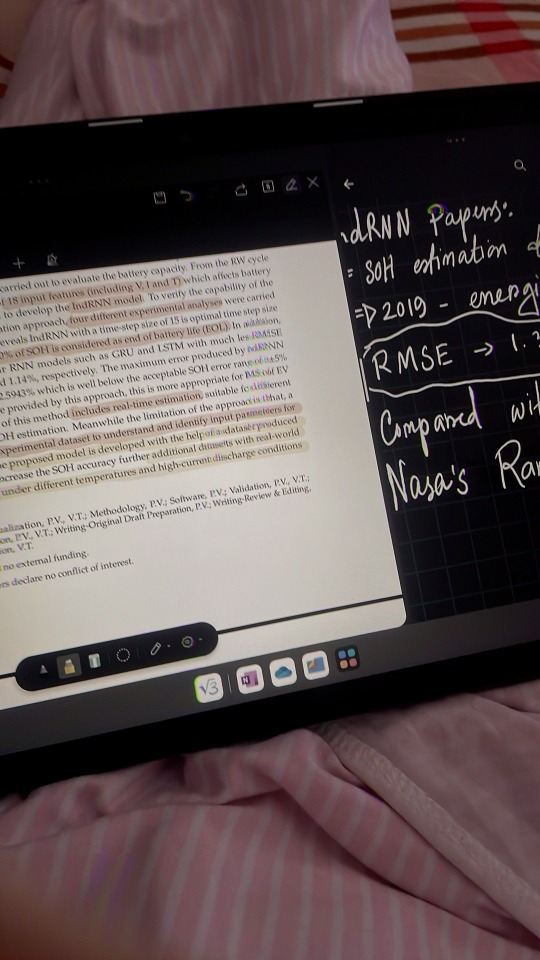 carried out to evaluate the battery capacity. From the RW cycle
of 18 input features (including V, I and T) which affects battery
to develop the IndRNN model. To verify the capability of the
ation approach, four different experimental analyses were carried
eveals IndRNN with a time-step size of 15 is optimal time step size
0% of SOH is considered as end of battery life (EOL). In addition,
r RNN models such as GRU and LSTM with much less RMSE
d 1.14%, respectively. The maximum error produced by IndRNN
2.5943% which is well below the acceptable SOH error range of ±5%
e provided by this approach, this is more appropriate for BMS of EV
of this method includes real-time estimation, suitable for different
OH estimation. Meanwhile the limitation of the approach is that, a
xperimental dataset to understand and identify input parameters for
he proposed model is developed with the help of a dataset produced
ncrease the SOH accuracy further additional datasets with real-world
under different temperatures and high-current discharge conditions
alization, P.V., V.T.; Methodology, P.V.; Software, P.V.; Validation, P.V., V.T.;
on, P.V., V.T.; Writing-Original Draft Preparation, P.V.; Writing-Review & Editing,
ion, V.T.
no external funding.
rs declare no conflict of interest.
dRNN Papers:
= SOH estimation
=> 2019 - energi
RMSE → 1.
Compared wit
Nasa's Ran
√3
N